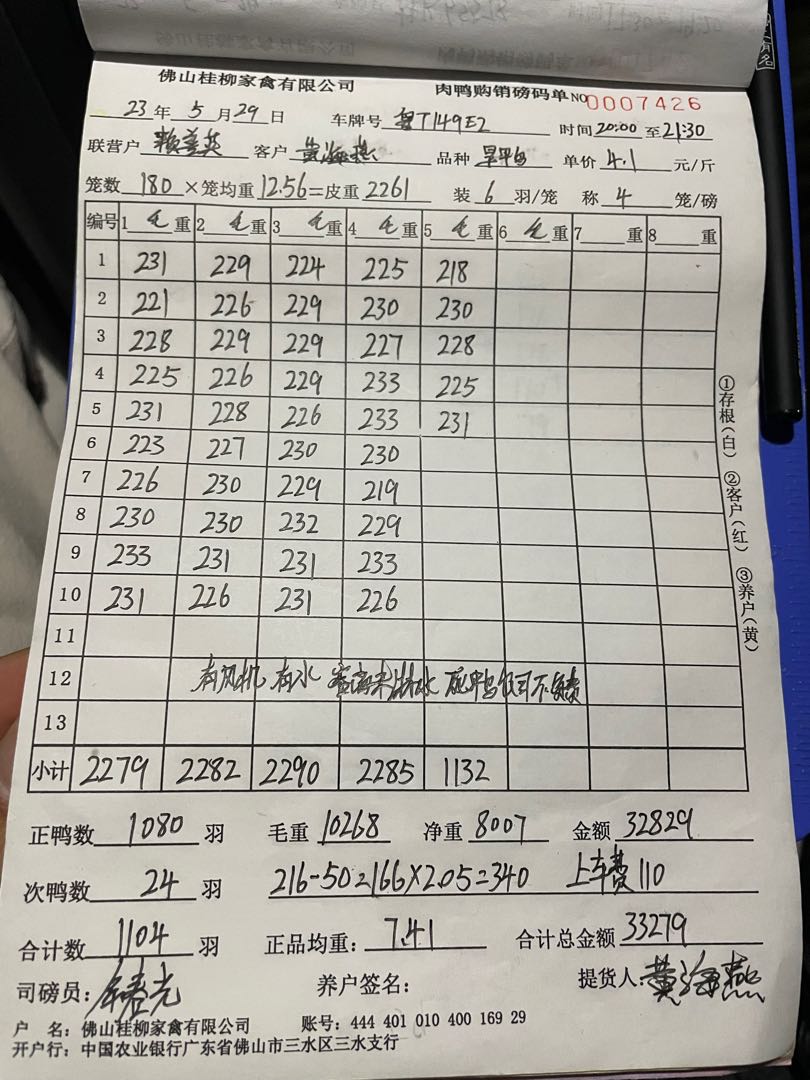 佛山桂柳家禽有限公司 肉鸭购销磅码单 NO 0007426
23 年 5 月 29 日 车牌号 T149E2 时间 20:00 至 21:30
联营户 赖美英 客户 黄海燕 品种 单价 4.1 元/斤
笼数 180 ×笼均重 12.56 =皮重 2261 装 6 羽/笼 称 4 笼/磅
编号 1 毛 重 2 毛 重 3 毛 重 4 毛 重 5 毛 重 6 毛 重 7 重 8 重
1 231 229 224 225 218
2 221 226 229 230 230
3 228 229 229 227 228
4 225 226 229 233 225
5 231 228 226 233 231
6 223 227 230 230
7 226 230 229 219
8 230 230 232 229
9 233 231 231 233
10 231 226 231 226
11
12 有风机 有水
13
小计 2279 2282 2290 2285 1132
正鸭数 1080 羽 毛重 10268 净重 8007 金额 32829
次鸭数 24 羽 216-50=166×2.05=340 上车费 110
合计数 1104 羽 正品均重: 7.41 合计总金额 33279
司磅员: 养户签名: 提货人: 黄海燕
户 名: 佛山桂柳家禽有限公司 账号: 444 401 010 400 169 29
开户行: 中国农业银行广东省佛山市三水区三水支行
①存根(白) ②客户(红) ③养户(黄)